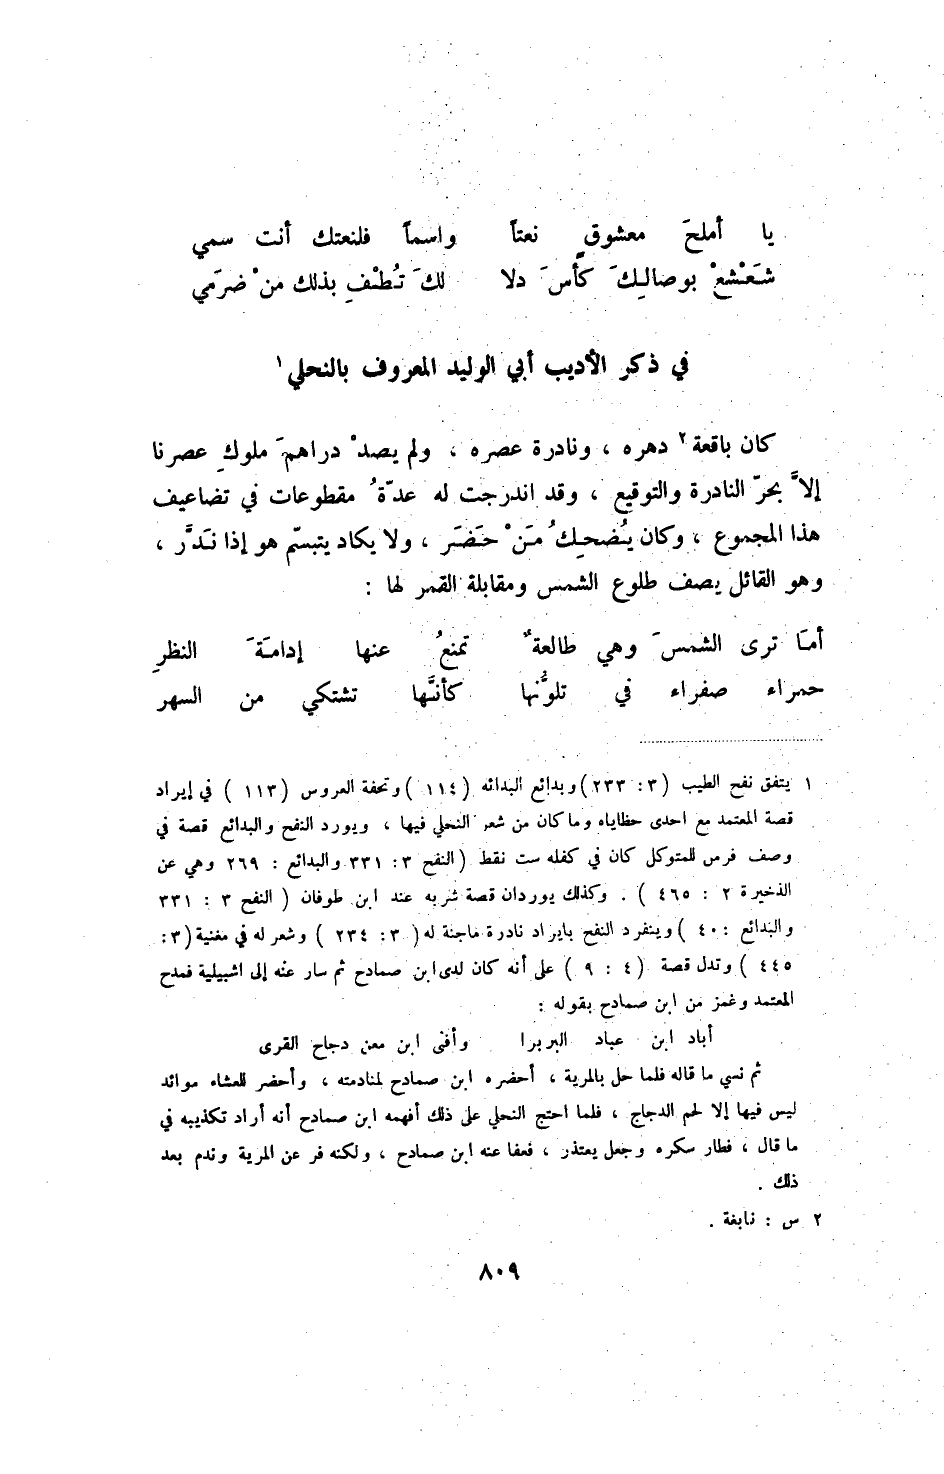 يا أملحَ معشوقٍ نعتاً واسماً فلنعتك أنت سمي
شَعْشعْ بوصالِكَ كأسَ دلا لكَ تُطْفِ بذلك منْ ضرَمي
في ذكر الأديب أبي الوليد المعروف بالنحلي ١
كان باقعة ٢ دهره ، ونادرة عصره ، ولم يصدْ دراهمَ ملوكِ عصرنا
إلاَّ بحرّ النادرة والتوقيع ، وقد اندرجت له عدّةُ مقطوعات في تضاعيف
هذا المجموع ، وكان يُضحِكُ مَنْ حَضَر ، ولا يكاد يتبسّم هو إذا نَدَّر ،
وهو القائل يصف طلوع الشمس ومقابلة القمر لها :
أمَا ترى الشمسَ وهي طالعةٌ تمنعُ عنها إدامَةَ النظرِ
حمراء صفراء في تلوُّنها كأنَّها تشتكي من السهر
١ يتفق نفح الطيب (٣ : ٢٣٣) وبدائع البدائه (١١٤) وتحفة العروس (١١٣) في إيراد
قصة المعتمد مع احدى حظاياه وما كان من شعر النحلي فيها ، ويورد النفح والبدائع قصة في
وصف فرس للمتوكل كان في كفله ست نقط (النفح ٣ : ٣٣١ والبدائع : ٢٦٩ وهي عن
الذخيرة ٢ : ٤٦٥) . وكذلك يوردان قصة شربه عند ابن طوفان (النفح ٣ : ٣٣١
والبدائع : ٤٠) وينفرد النفح بايراد نادرة ماجنة له (٣ : ٢٣٤) وشعر له في مغنية (٣ :
٤٤٥) وتدل قصة (٤ : ٩) على أنه كان لدى ابن صمادح ثم سار عنه إلى اشبيلية فمدح
المعتمد وغمز من ابن صمادح بقوله :
أباد ابن عباد البربرا وأفنى ابن معن دجاج القرى
ثم نسي ما قاله فلما حل بالمرية ، أحضره ابن صمادح لمنادمته ، وأحضر للعشاء موائد
ليس فيها إلا لحم الدجاج ، فلما احتج النحلي على ذلك أفهمه ابن صمادح أنه أراد تكذيبه في
ما قال ، فطار سكره وجعل يعتذر ، فعفا عنه ابن صمادح ، ولكنه فر عن المرية وندم بعد
ذلك .
٢ س : نابغة .
٨٠٩